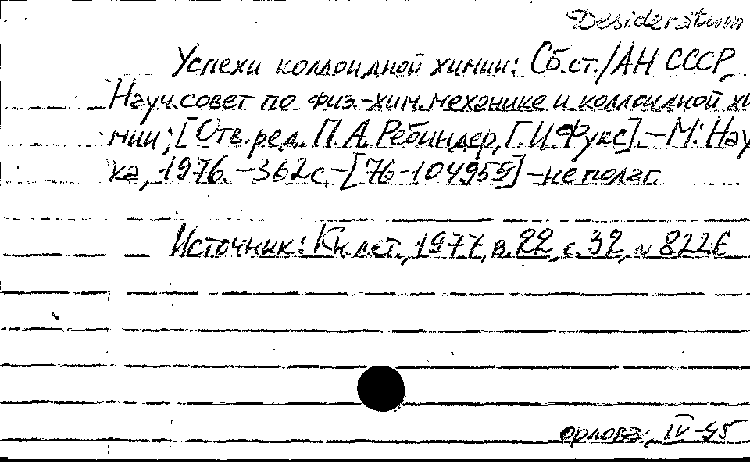 Desideratum
Успехи коллоидной химии: Сб.ст./АН СССР,
Науч.совет по физ-хим.механике и коллоидной хи
мии; [Отв.ред. П.А.Ребиндер, Г.И.Фукс].-М.: Нау
ка, 1976.-362с.-[76-104955]-не полаг.
Источник: Кн.лет., 1977, в.22, с.32, № 8226
орлова, IV-95